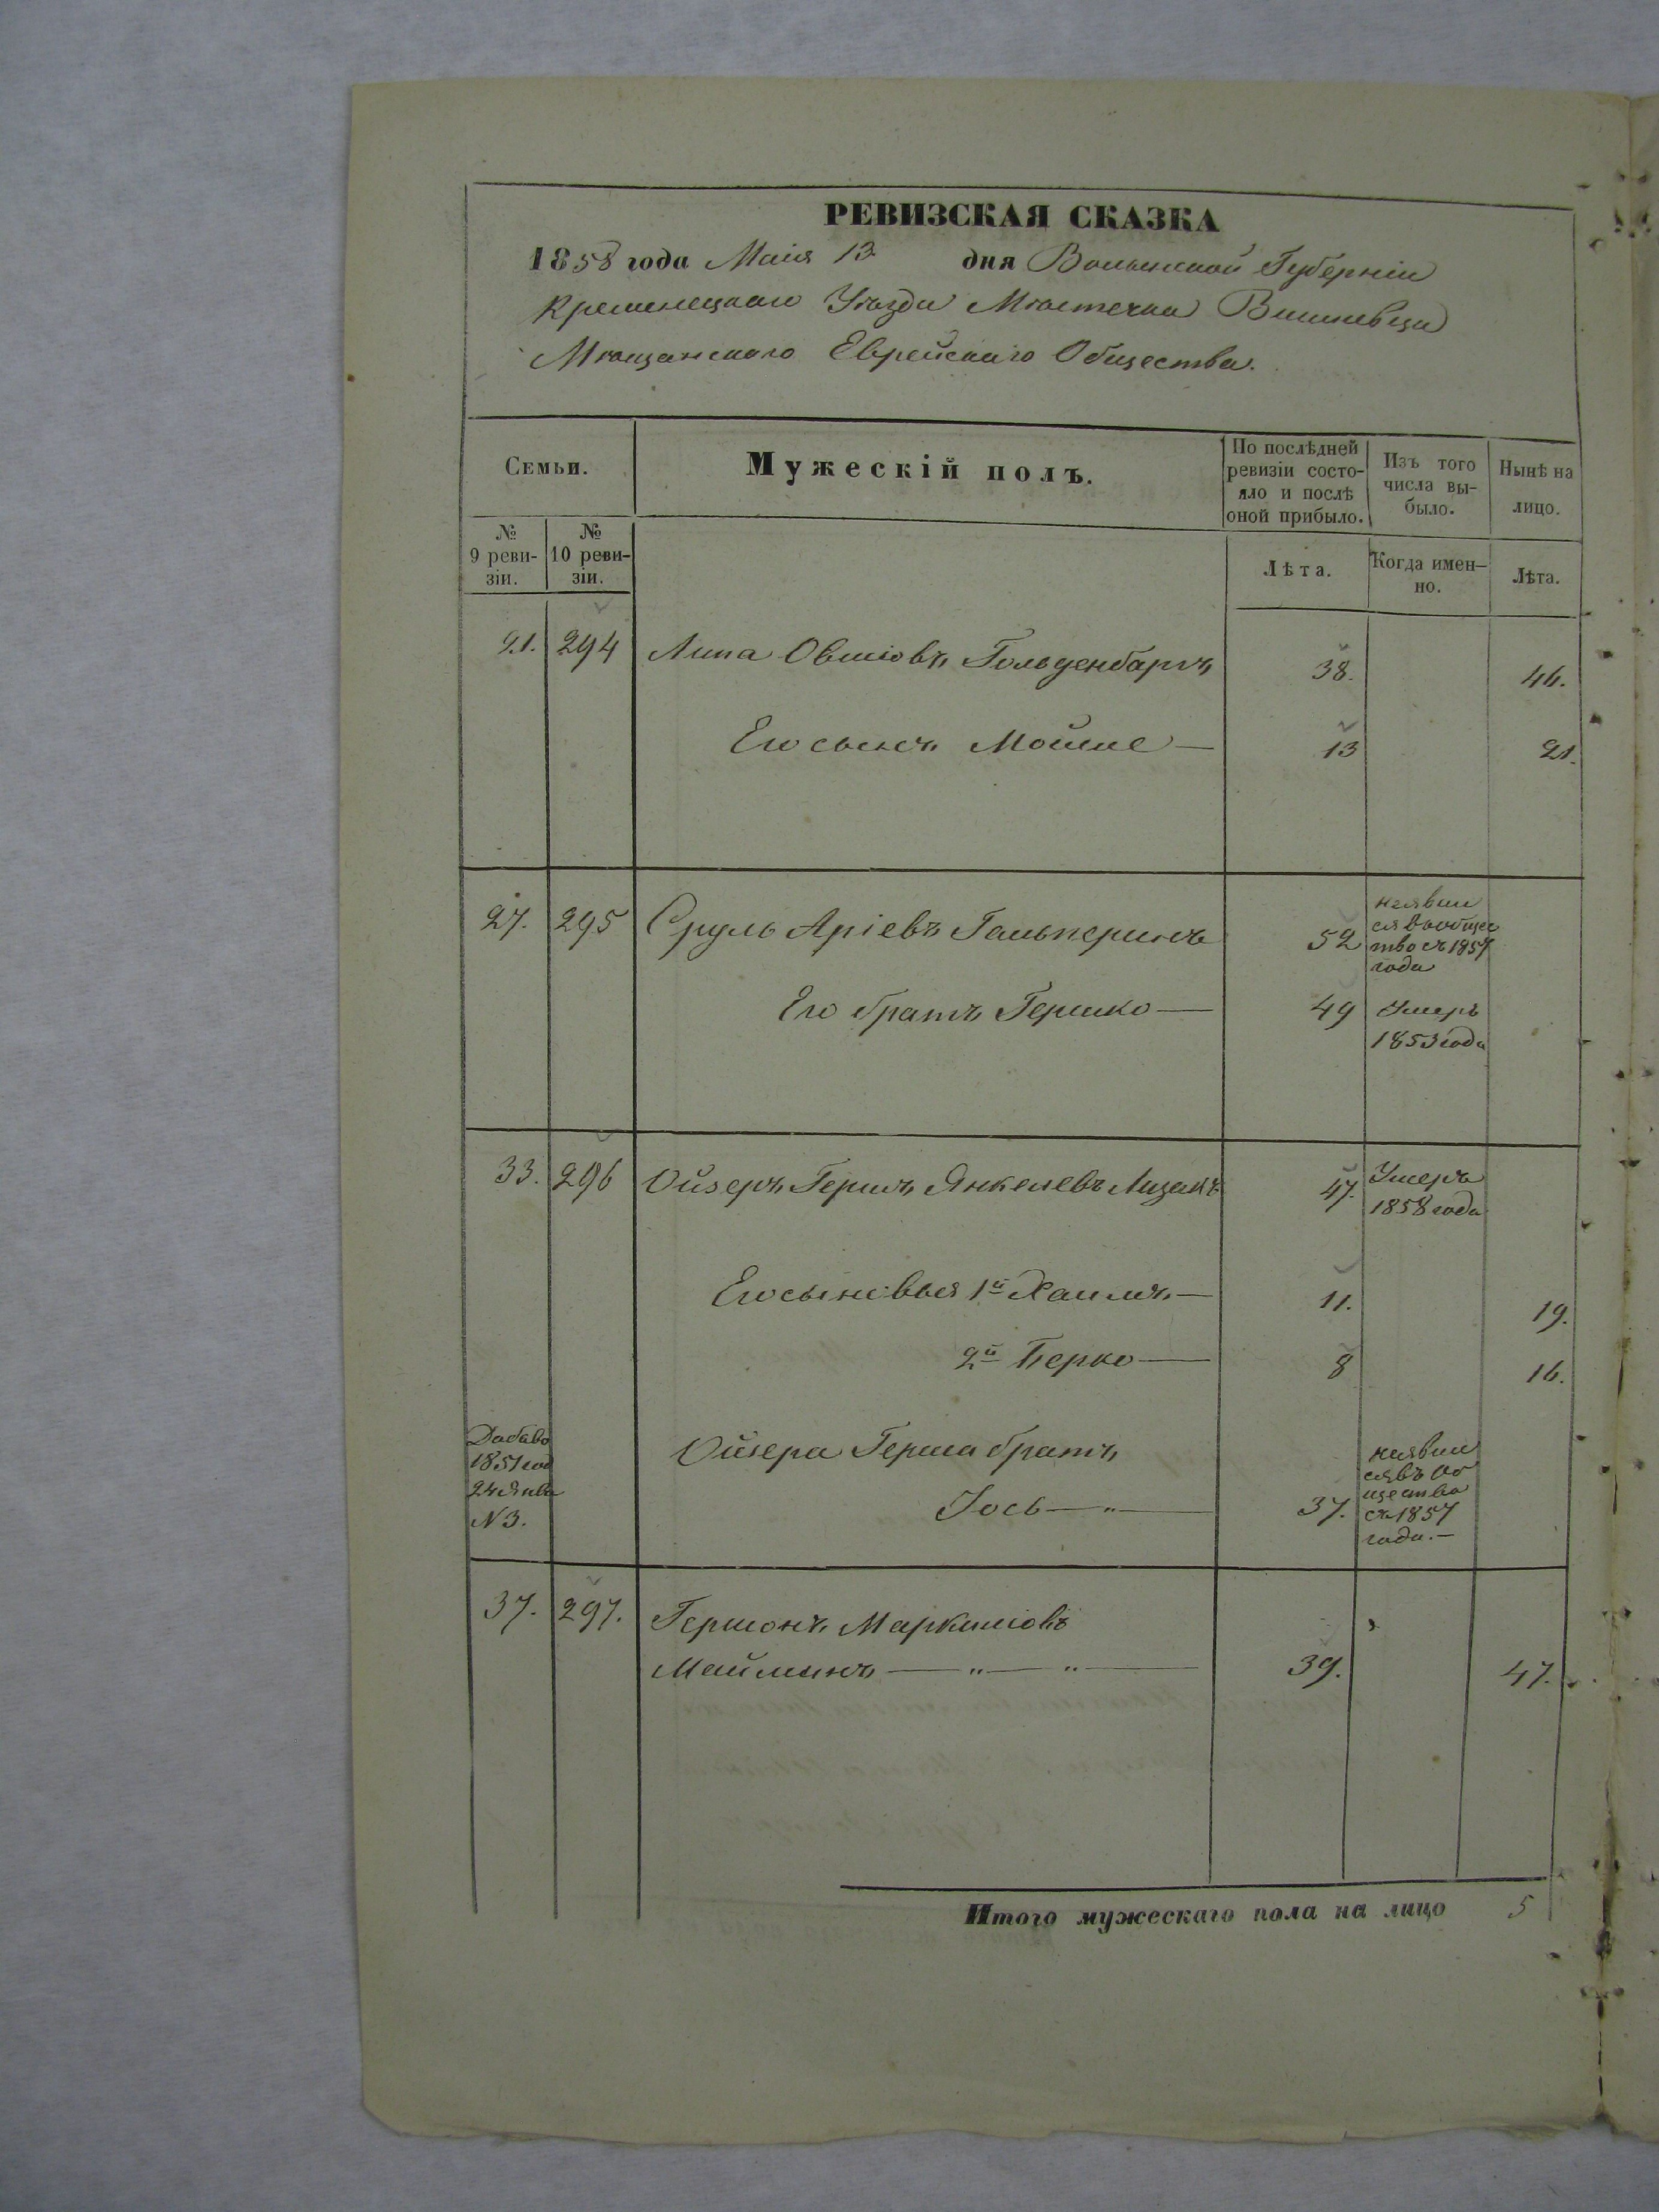 РЕВИЗСКАЯ СКАЗКА
1858 года Маія 13 дня Волынской Губерніи
Кременецкаго Уѣзда Мѣстечка Вишневца
Мѣщанскаго Еврейскаго Общества.
Семьи.
Мужескій полъ.
По послѣдней ревизіи состо-
яло и послѣ оной прибыло.
Изъ того числа вы-
было.
Нынѣ на лицо.
№ 9 реви-
зіи.
№ 10 реви-
зіи.
Лѣта.
Когда имен-
но.
Лѣта.
21. 294 Липа Овшіовъ Гольденбаргъ 38. 46.
Его сынъ Мойше — 13 21.
27. 295 Сруль Аріевъ Гальперинъ 52
неявил
ся вообщес
тво съ 1857
года
Его братъ Гершко — 49 Умеръ
1853 года
33. 296 Ойзеръ Гершъ Янкелевъ 47. Умеръ
1858 года
Его сыновья 1й Хаимъ — 11. 19.
2й Берко — 8 16.
Добаво
1851 год
24 Янва
N 3.
Ойзера Герша братъ
Іось — " — 37.
неявил
ся въ об
щество
съ 1857
года. —
37. 297. Гершонъ Маркушовъ
Майминъ — " — " — 39. 47.
Итого мужескаго пола на лицо 5